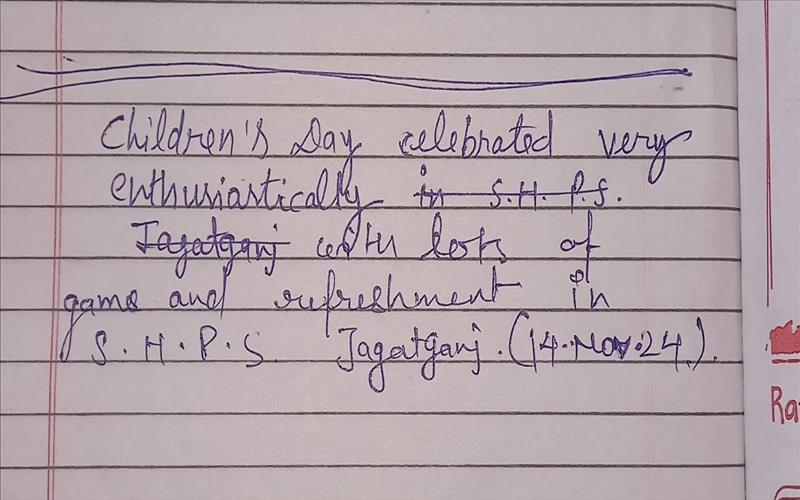 Children's Day celebrated very
enthusiastically in S.H. P.S.
Jagatganj with lots of
game and refreshment in
S.H.P.S Jagatganj. (14.Nov.24.).
Ra